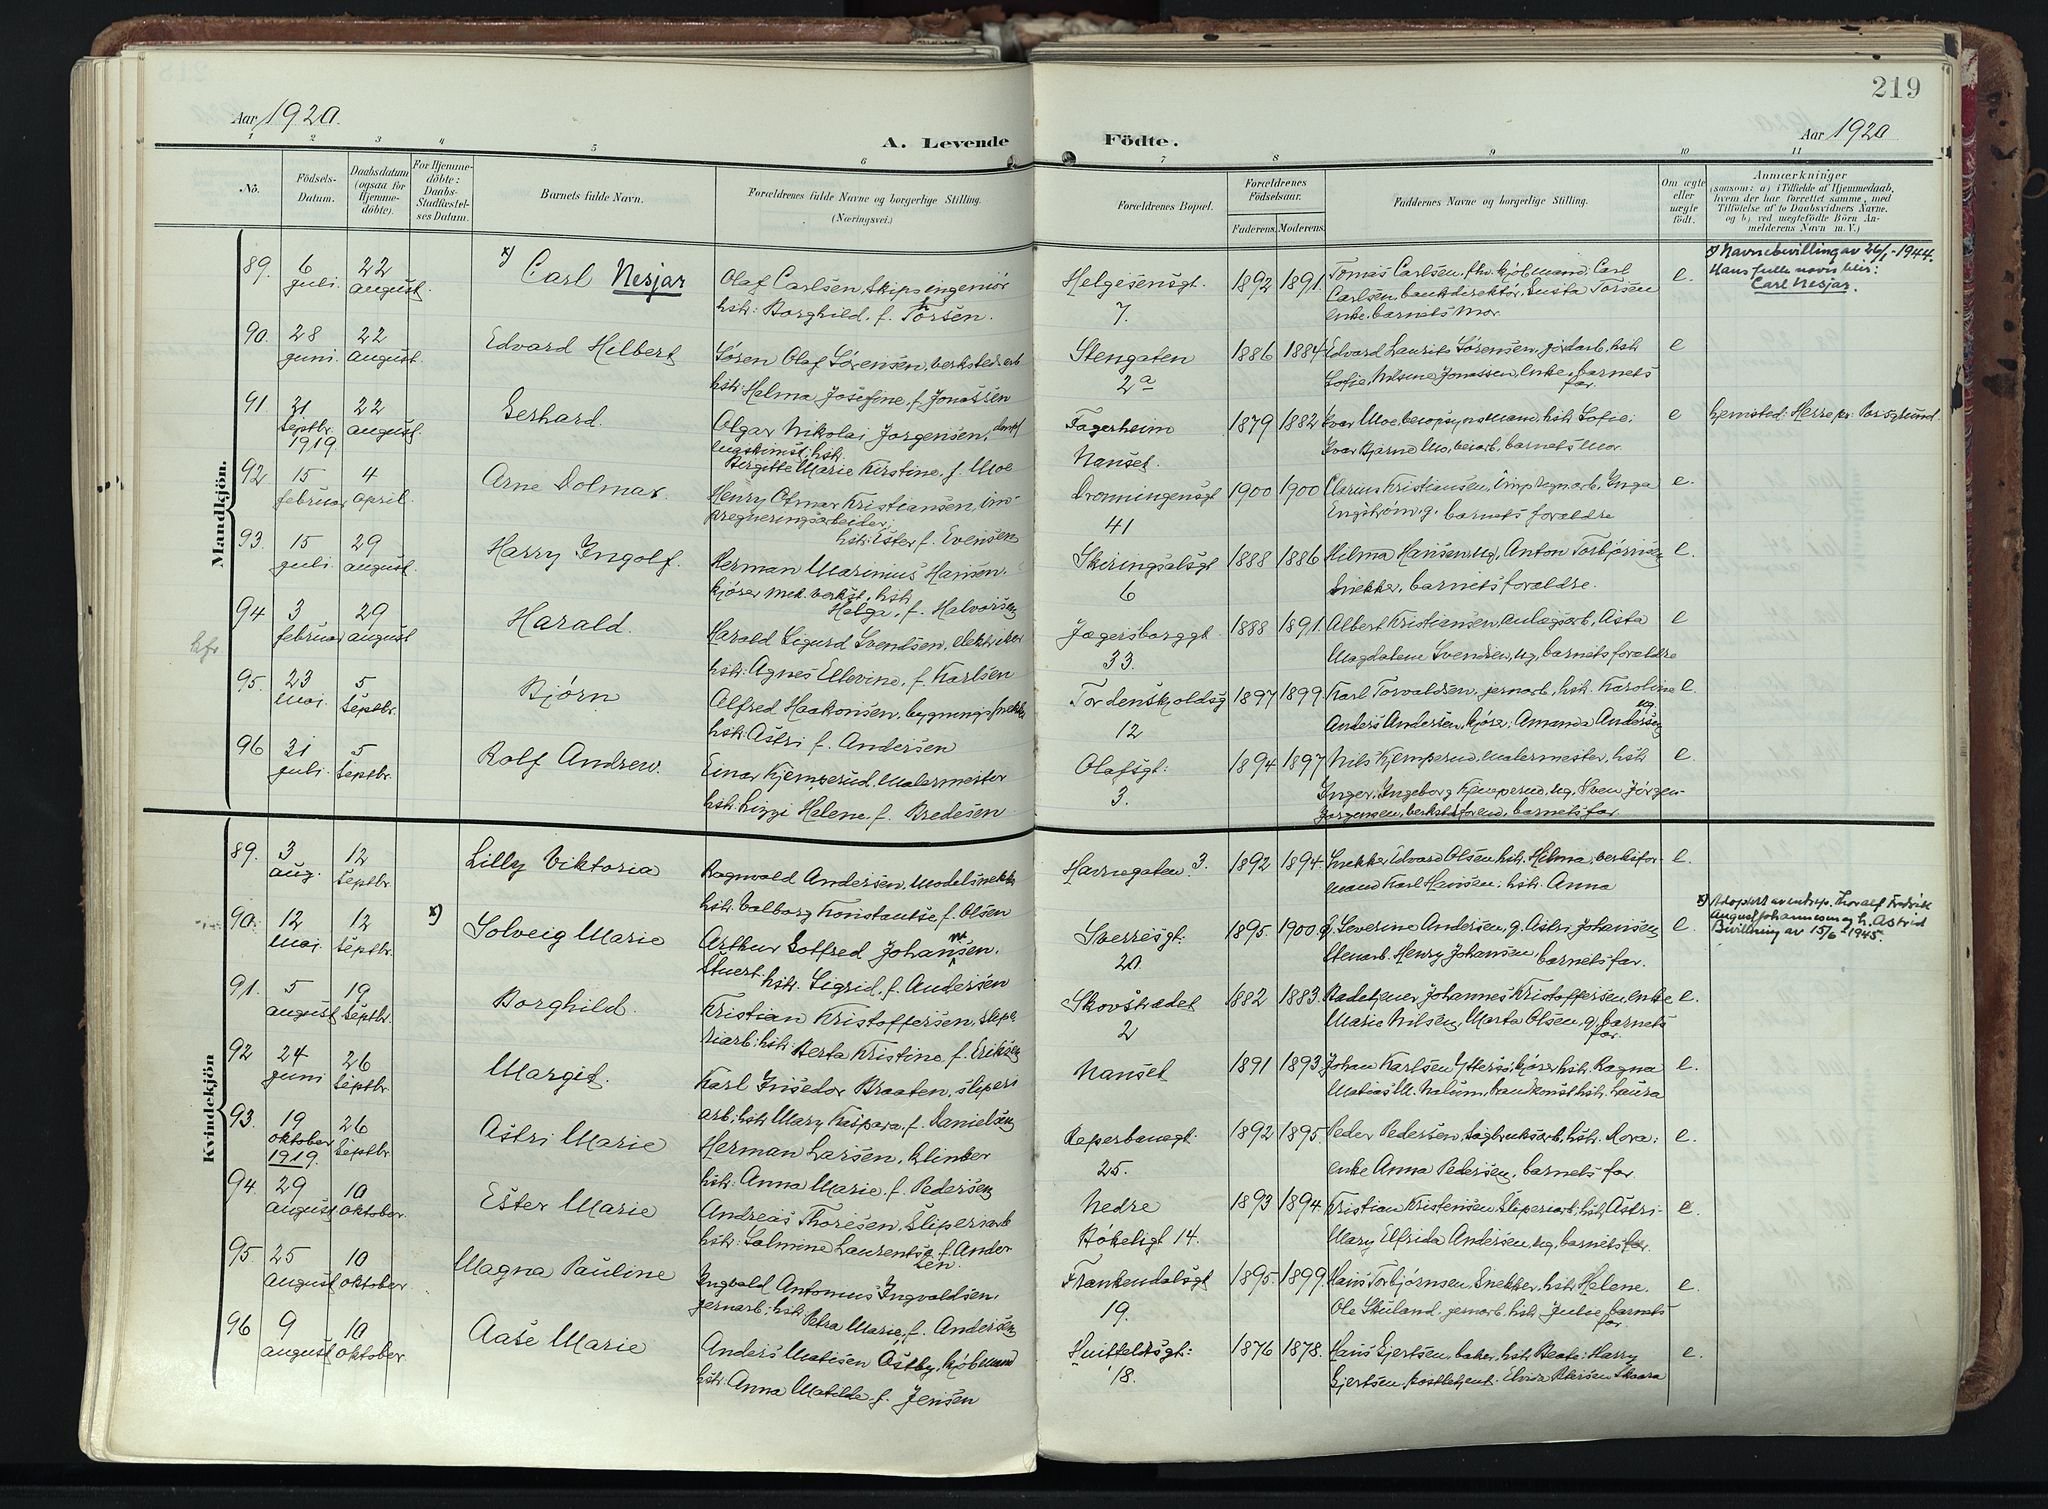 219
Aar 1920.
A. Levende
Födte.
Aar 1920
1 2 3 4 5 6 7 8 9 10 11
No.
Födsels-
Datum.
Daabsdatum
(ogsaa for
Hjemme-
döbte).
For Hjemme-
döbte:
Daabs-
Stadfæstel-
ses Datum.
Barnets fulde Navn.
Forældrenes fulde Navne og borgerlige Stilling.
(Næringsvei.)
Forældrenes Bopæl.
Forældrenes
Födselsaar.
Faderens. Moderens.
Faddernes Navne og borgerlige Stilling.
Om ægte
eller
uægte
födt.
Anmærkninger
(saasom: a) i Tilfælde af Hjemmedaab,
hvem der har forrettet samme, med
Tilföielse af to Daabsvidners Navne.
og b) ved uægtefödte Börn An-
melderens Navn m. V.)
Mandkjön.
89. 6 juli 22 august x) Carl Nesjar
Olaf Carlsen, skipsingeniör
hstr: Borghild, f. Torsen.
Helgesensgt. 7.
1892 1891.
Tomas Carlsen, fhv. kjöbmand, Carl
Carlsen, bankdirektör,
enke, barnets mor.
e
x) Navnebevilling av 26/1-1944.
Hans fulle navn blir:
Carl Nesjar.
90. 28 juni. 22 august. Edvard Hilbert
Søren Olaf Sørensen, verkstedarb
hstr: Helma Josefine, f. Jonassen
Stengaten 2a
1886 1884
Edvard Laurits Sørensen, jordarb, hstr
Sofie, Nilsine Jonassen, enke, barnets
far.
e
91. 21 Septbr. 1919 22 august. Gerhard.
Olgar Nikolai Jorgensen,
maskinist, hstr.
Birgitte Marie Kirstine, f. Moe
Fagerheim
Nanset.
1879 1882
Ivar Moe, hstr. Sofie;
Ivar Bjarne Mo, barnets mor.
e
92 15 februar 4 april. Arne Dolmar.
Henry Olmar Kristiansen, im-
pregneringsarbeider;
hstr: Ester f. Evensen
Dronningensgt 41
1900 1900
Kristiansen, impregnarb, Inga
Engstrøm, g. barnets forældre
e.
93. 15 juli. 29 august. Harry Ingolf.
Herman Marinius Hansen,
kjörer mek. verkst, hstr
Helga, f. Halvorsen
Skiringsalsgt 6
1888 1886
Hilma Hansen, ug, Anton Torbjörnsen
Snekker, barnets forældre.
e.
94 3 februar 29 august Harald.
Harald Sigurd Svendsen, elektriker
hstr: Agnes Ellevine, f. Karlsen
Jægersborggt. 33.
1888 1891.
Albert Kristiansen, anlægsarb, Asta
Magdalene Svendsen, ug, barnets forældre
e
95. 23 mai. 5 Septbr. Bjørn
Alfred Haakonsen, bygningssnekker
hstr: Astri f. Andersen
Tordenskjoldsg 12
1897 1899.
Karl Torvaldsen, jernarb, hstr. Karoline
Anders Andersen, kjörer; Amanda Andersen
ug.
e.
96 31 juli. 5 Septbr. Rolf Andrew.
Einar Kjemperud, malermester
hstr: Lizzi Helene, f. Bredesen
Olafsgt: 3.
1894 1897
Nils Kjemperud, malermester, hstr
Inger; Ingeborg Kjemperud, ug. Sven Jörgen
Jörgensen, barnets far.
e.
Kvindekjön
89. 3 aug. 12 Septbr. Lilly Viktoria
Ragnvald Andersen, modelsnekker
hstr: Valborg Konstantse f. Olsen
Havnegaten 3.
1892 1894.
Snekker Edvard Olsen hstr. Hilma, verksfor-
mand Karl Hansen; hstr. Anna
e.
90. 12 mai 12 Septbr. x) Solveig Marie
Artbur Gotfred Johansen.
Stuert. hstr. Sigrid, f. Andersen
Sverresgt. 20.
1895. 1900
g. Severine Andersen, g. Astri Johansen
Stenarb. Henry Johansen, barnets far.
e.
x) Adoptert av entrep. Thoralf Fredrik
August Johannesen og h. Astrid
Bevillning av 15/6-1945.
91. 5 august 19 Septbr. Borghild.
Kristian Kristoffersen, slipe
riarb: hstr: Berta Kristine, f. Eriksen
Skovstrædet 2
1882 1883.
Johannes Kristoffersen, enke
Marie Nilsen, Marta Olsen, g. barnets
far.
e.
92 24 juni 26 Septbr. Margit.
Karl Braaten, sliperi
arb; hstr Mary Kaspara, f. Danielsen
Nanset
1891 1893.
Johan Karlsen kjörer hstr. Ragna
Matias M. Nalum, hstr. Laura
e.
93. 19 oktober 1919. 26 Septbr. Astri Marie
Herman Larsen, klinker
hstr: Anna Marie, f. Pedersen
Reperbanegt. 25.
1892 1895.
Peder Pedersen, Sagbruksarb, hstr. Mora;
enke Anna Pedersen, barnets far
e.
94. 29 august 10 oktober. Ester Marie
Andreas Thoresen, Sliperiarb
hstr: Salmine Laurentse f. Ander
sen.
Nedre
Bökeligt 14.
1893 1894.
Kristian Kristensen Sliperiarb; hstr. Astri-
Mary Elfrida Andersen, ug, barnets far.
e.
95. 25 august 10 oktober. Magna Pauline
Ingvald Antonius Ingvaldsen,
jernarb; hstr: Petra Marie, f. Andersen
Frankendalsgt 19.
1895. 1899
Hans Torbjørnsen, Snekker, hstr. Helene.
Ole jernarb. hstr. barnets
far.
e.
96 9 august 10 oktober. Aase Marie
Anders Matisen Østby, kjöbmand
hstr: Anna Matilde f. Jensen
Huitfeldtsgt: 18.
1876 1878.
Hans Gjertsen, baker, hstr Beate; Harry
Gjertsen, Elvir Petersen Skaara
e.